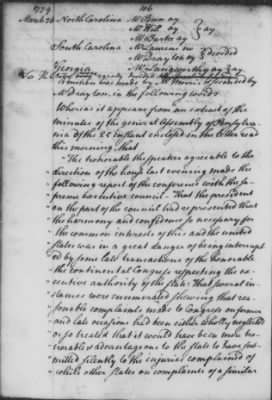 1779 106
March 26 North Carolina Mr Penn ay
Mr Hill ay } ay
Mr Burke ay
South Carolina Mr Laurens no } divided
Mr Drayton ay
Georgia Mr Langworthy ay } ay
A motion was made by Mr Morris seconded by
Mr Drayton, in the following words
Whereas it appears from an extract of the
minutes of the general Assembly of Pensylva-
nia of the 25 instant enclosed in the letter read
this morning that
" The honorable the speaker agreeable to the
" direction of the house last evening made the
" following report of the conference with the su-
" preme executive council. That the president
" on the part of the council had represented that
" the harmony and confidence so necessary for
" the common interests of this and the united
" states was in a great danger of being interrupt
" ed by some late transactions of the honorable
" the continental Congress respecting the ex-
" ecutive authority of the state. That several in-
" stances were enumerated shewing that rea-
" sonable complaints made to Congress on former
" and late occasions had been either wholly neglected
" or so treated that it would have been more ho-
" norable & advantageous to the state to have sub-
" mitted silently to the injuries complained of
" while other states on complaints of a similar